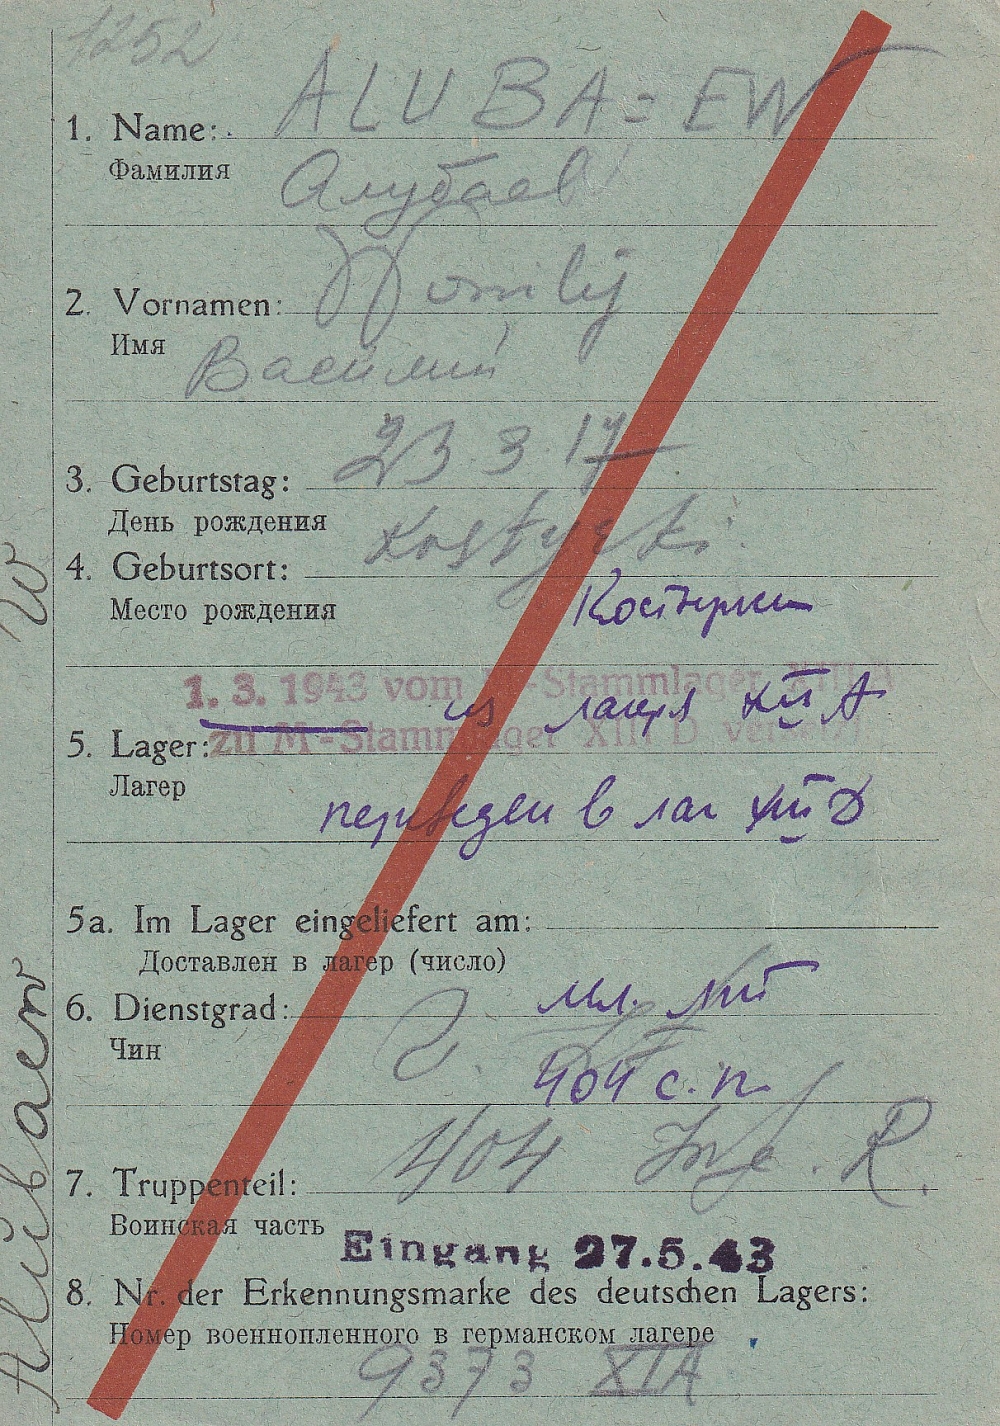 1252
1. Name: ALUBA=EW
Фамилия
Алубаев
2. Vornamen:
Имя
Василий
3. Geburtstag: 23.3.17
День рождения
4. Geburtsort:
Место рождения
1. 3. 1943 vom M-Stammlager XIII A
из лагеря XIII A
zu M-Stammlager XIII D versetzt
5. Lager:
Лагер
переведен в лаг XIII D
5a. Im Lager eingeliefert am:
Доставлен в лагер (число)
мл. лт
6. Dienstgrad:
Чин
404 с.п
7. Truppenteil: 404 Inf. R.
Воинская часть
Eingang 27.5.43
8. Nr. der Erkennungsmarke des deutschen Lagers:
Номер военнопленного в германском лагере
9373 XIA
Alubaew W